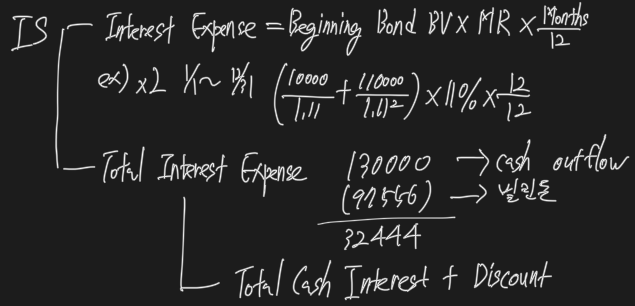 IS Interest Expense = Beginning Bond BV × MR × Months/12
ex) x2 1/1 ~ 12/31 (10000/1.11 + 110000/1.11²) × 11% × 12/12
Total Interest Expense 130000 → cash outflow
(97556) → 빌린돈
32444
Total Cash Interest + Discount